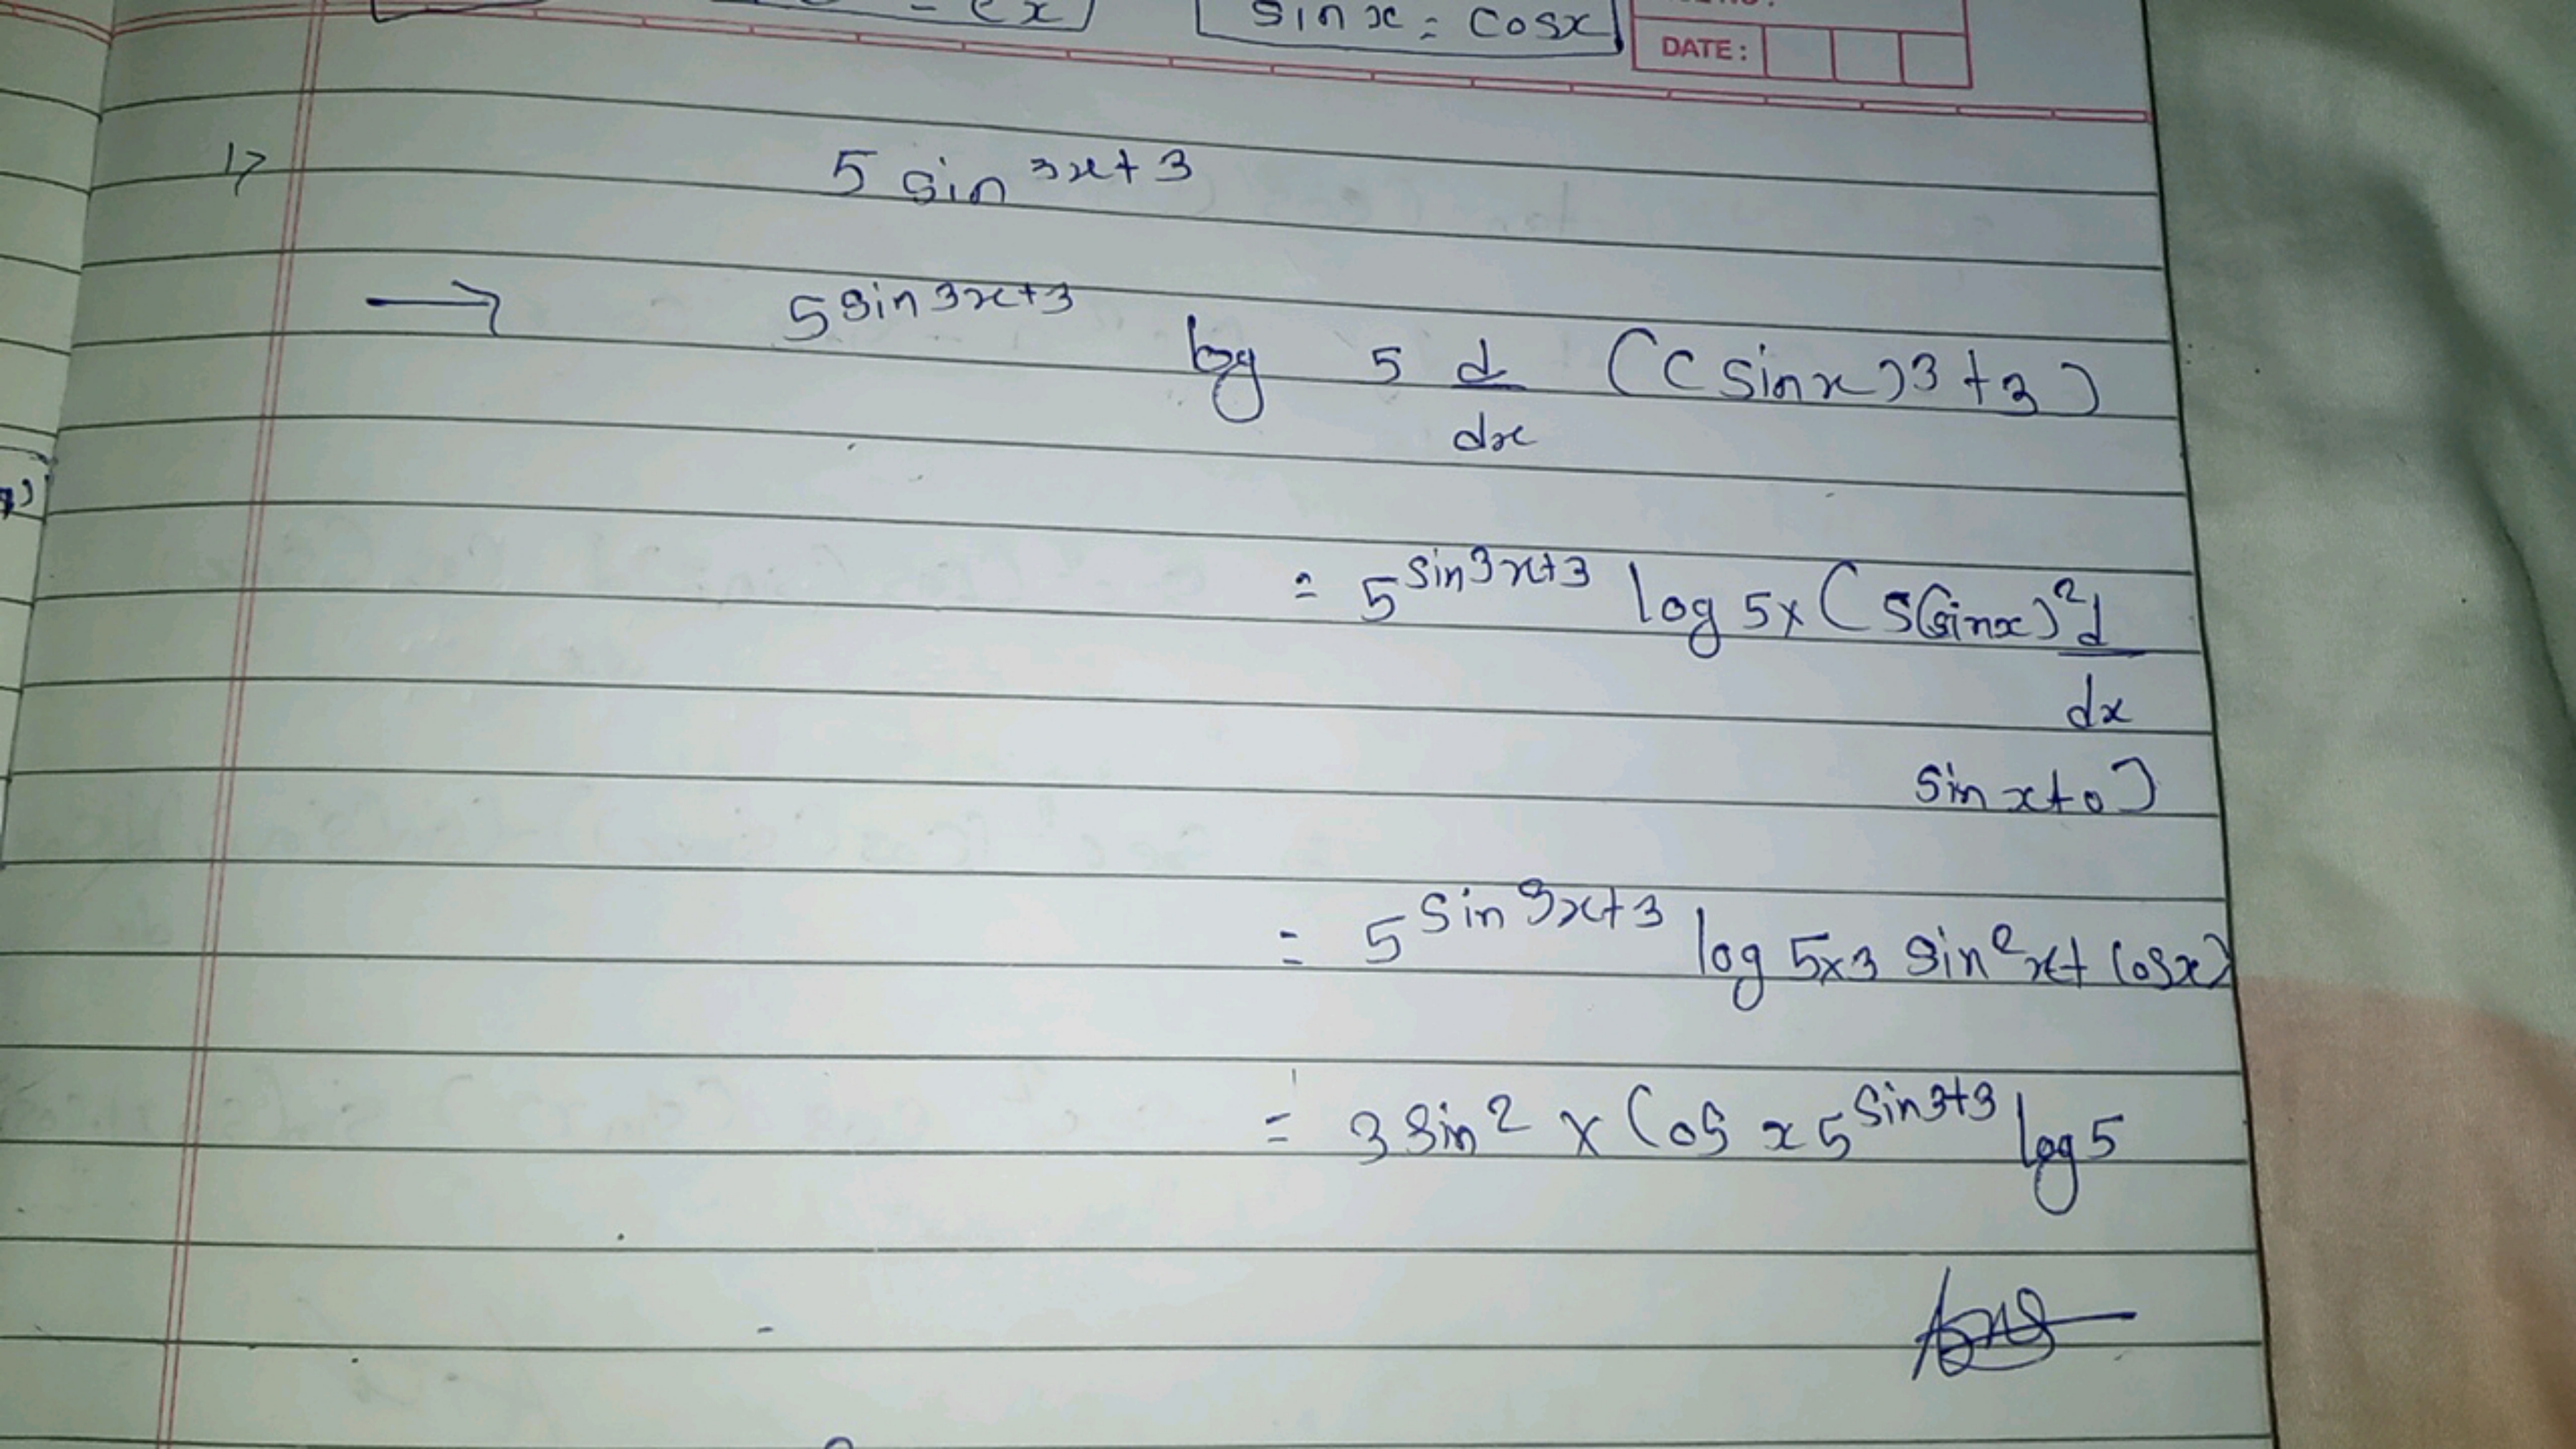 sin x = cosx
DATE:
1) 5 sin 3x+3
→ 5^sin3x+3 log 5 d/dx ((sinx)3+3)
= 5^sin3x+3 log 5x (5(sinx)^2 d/dx
sin x+0)
= 5^sin3x+3 log 5x3 sin^2x+ cosx)
= 3 sin^2 x cos x 5^sin3+3 log 5
Ans